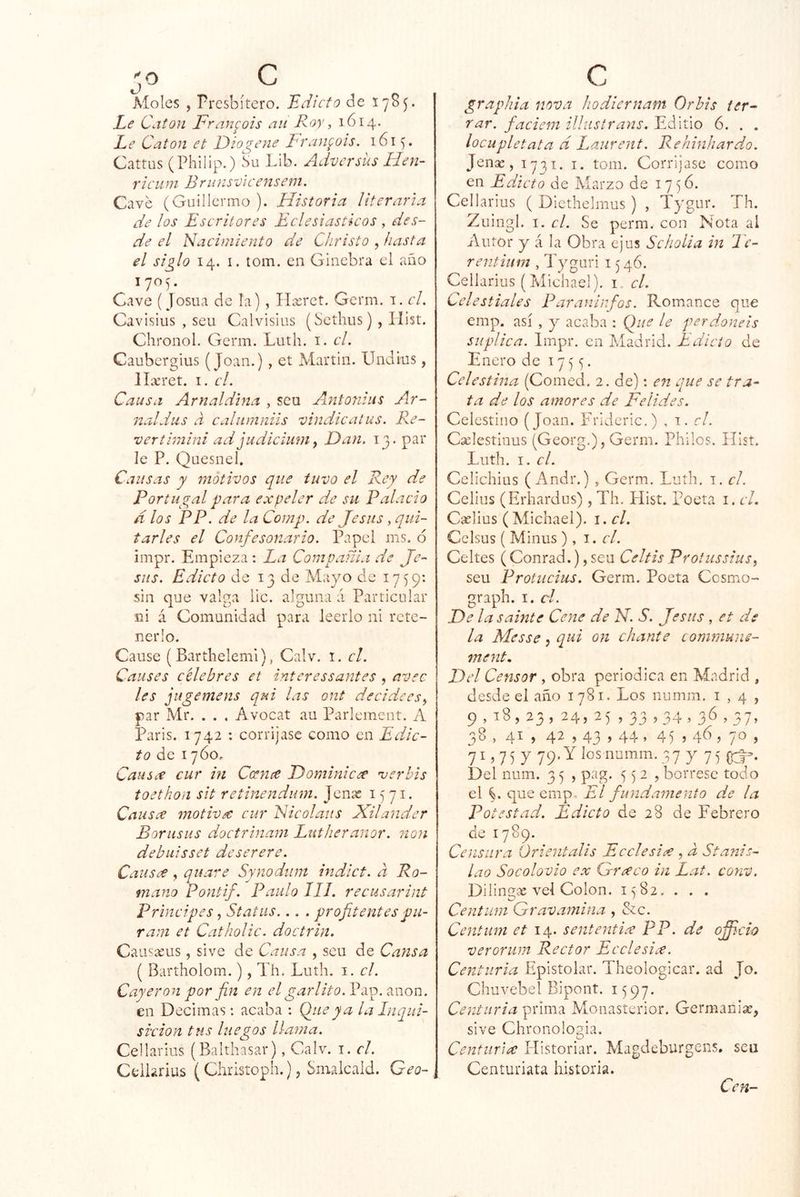 50 C
Moles , Presbítero. Edicto de 1785.
Le Caton François au Roy, 1614.
Le Caton et Diogene François. 1615.
Cattus (Philip.) Su Lib. Adversùs Hen-
ricum Brunsvicensem.
Cavè (Guillermo). Historia literaria
de los Escritores Eclesiasticos, des-
de el Nacimiento de Christo, hasta
el siglo 14. 1. tom. en Ginebra el año
1705.
Cave (Josua de la), Hæret. Germ. 1. cl.
Cavisius, seu Calvisius (Sethus), Hist.
Chronol. Germ. Luth. 1. cl.
Caubergius (Joan.), et Martin. Undius,
Hæret. 1. cl.
Causa Arnaldina, seu Antonius Ar-
naldus à calumniis vindicatus. Re-
vertimini ad judicium, Dan. 13. par
le P. Quesnel.
Causas y motivos que tuvo el Rey de
Portugal para expeler de su Palacio
á los PP. de la Comp. de Jesus, qui-
tarles el Confesonario. Papel ms. ó
impr. Empieza: La Compañia de Je-
sus. Edicto de 13 de Mayo de 1759:
sin que valga lic. alguna á Particular
ni á Comunidad para leerlo ni rete-
nerlo.
Cause (Barthelemi), Calv. 1. cl.
Causes célebres et interessantes, avec
les jugemens qui las ont decidees,
par Mr. . . . Avocat au Parlement. A
Paris. 1742 : corrijase como en Edic-
to de 1760.
Causæ cur in Cœnæ Dominicæ verbis
toethon sit retinendum. Jenæ 1571.
Causæ motivæ cur Nicolaus Xilander
Borusus doctrinam Lutheranor. non
debuisset deserere.
Causæ, quare Synodum indict. à Ro-
mano Pontif. Paulo III. recusarint
Principes, Status. . . . profitentes pu-
ram et Catholic. doctrin.
Causæus, sive de Causa, seu de Cansa
(Bartholom.), Th. Luth. 1. cl.
Cayeron por fin en el garlito. Pap. anon.
en Decimas: acaba : Que ya la Inqui-
sicion tus luegos llama.
Cellarius (Balthasar), Calv. 1. cl.
Cellarius (Christoph.), Smalcald. Geo-
C
graphia nova hodiernam Orbis ter-
rar. faciem illustrans. Editio 6. . .
locupletata á Laurent. Rehinhardo.
Jenæ, 1731. 1. tom. Corrijase como
en Edicto de Marzo de 1756.
Cellarius (Diethelmus), Tygur. Th.
Zuingl. 1. cl. Se perm. con Nota al
Autor y á la Obra ejus Scholia in Te-
rentium, Tyguri 1546.
Cellarius (Michael). 1. cl.
Celestiales Paraninfos. Romance que
emp. así , y acaba : Que le perdoneis
suplica. Impr. en Madrid. Edicto de
Enero de 1755.
Celestina (Comed. 2. de): en que se tra-
ta de los amores de Felides.
Celestino (Joan. Frideric.) , 1. cl.
Cælestinus (Georg.), Germ. Philos. Hist.
Luth. 1. cl.
Celichius (Andr.) , Germ. Luth. 1. cl.
Celius (Erhardus) , Th. Hist. Poeta 1. cl.
Cælius (Michael). 1. cl.
Celsus (Minus), 1. cl.
Celtes (Conrad.), seu Celtis Protussius,
seu Protucius. Germ. Poeta Cosmo-
graph. 1. cl.
De la sainte Cene de N. S. Jesus, et de
la Messe, qui on chante commune-
ment.
Del Censor, obra periodica en Madrid ,
desde el año 1781. Los numm. 1 , 4 ,
9 , 18, 23, 24, 25 , 33 , 34, 36 , 37,
38 , 41 , 42 , 43 , 44, 45 , 46, 70 ,
71, 75 y 79. Y los numm. 37 y 75 ☞.
Del num. 35 , pag. 552 , borrese todo
el §. que emp. El fundamento de la
Potestad. Edicto de 28 de Febrero
de 1789.
Censura Orientalis Ecclesiæ, à Stanis-
lao Socolovio ex Græco in Lat. conv.
Dilingæ vel Colon. 1582. . . .
Centum Gravamina, &c.
Centum et 14. sententiæ PP. de officio
verorum Rector Ecclesiæ.
Centuria Epistolar. Theologicar. ad Jo.
Chuvebel Bipont. 1597.
Centuria prima Monasterior. Germaniæ,
sive Chronologia.
Centuriæ Historiar. Magdeburgens. seu
Centuriata historia.
Cen-